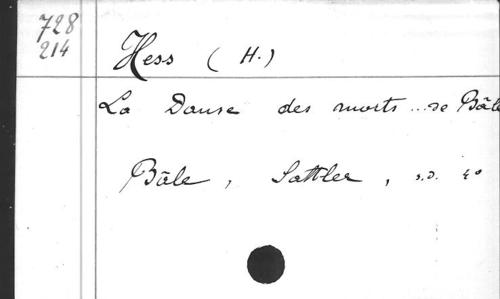 728
214
Hess (H.)
La Danse des morts ... de Bâle
Bâle, Sattler, s.d. 4º